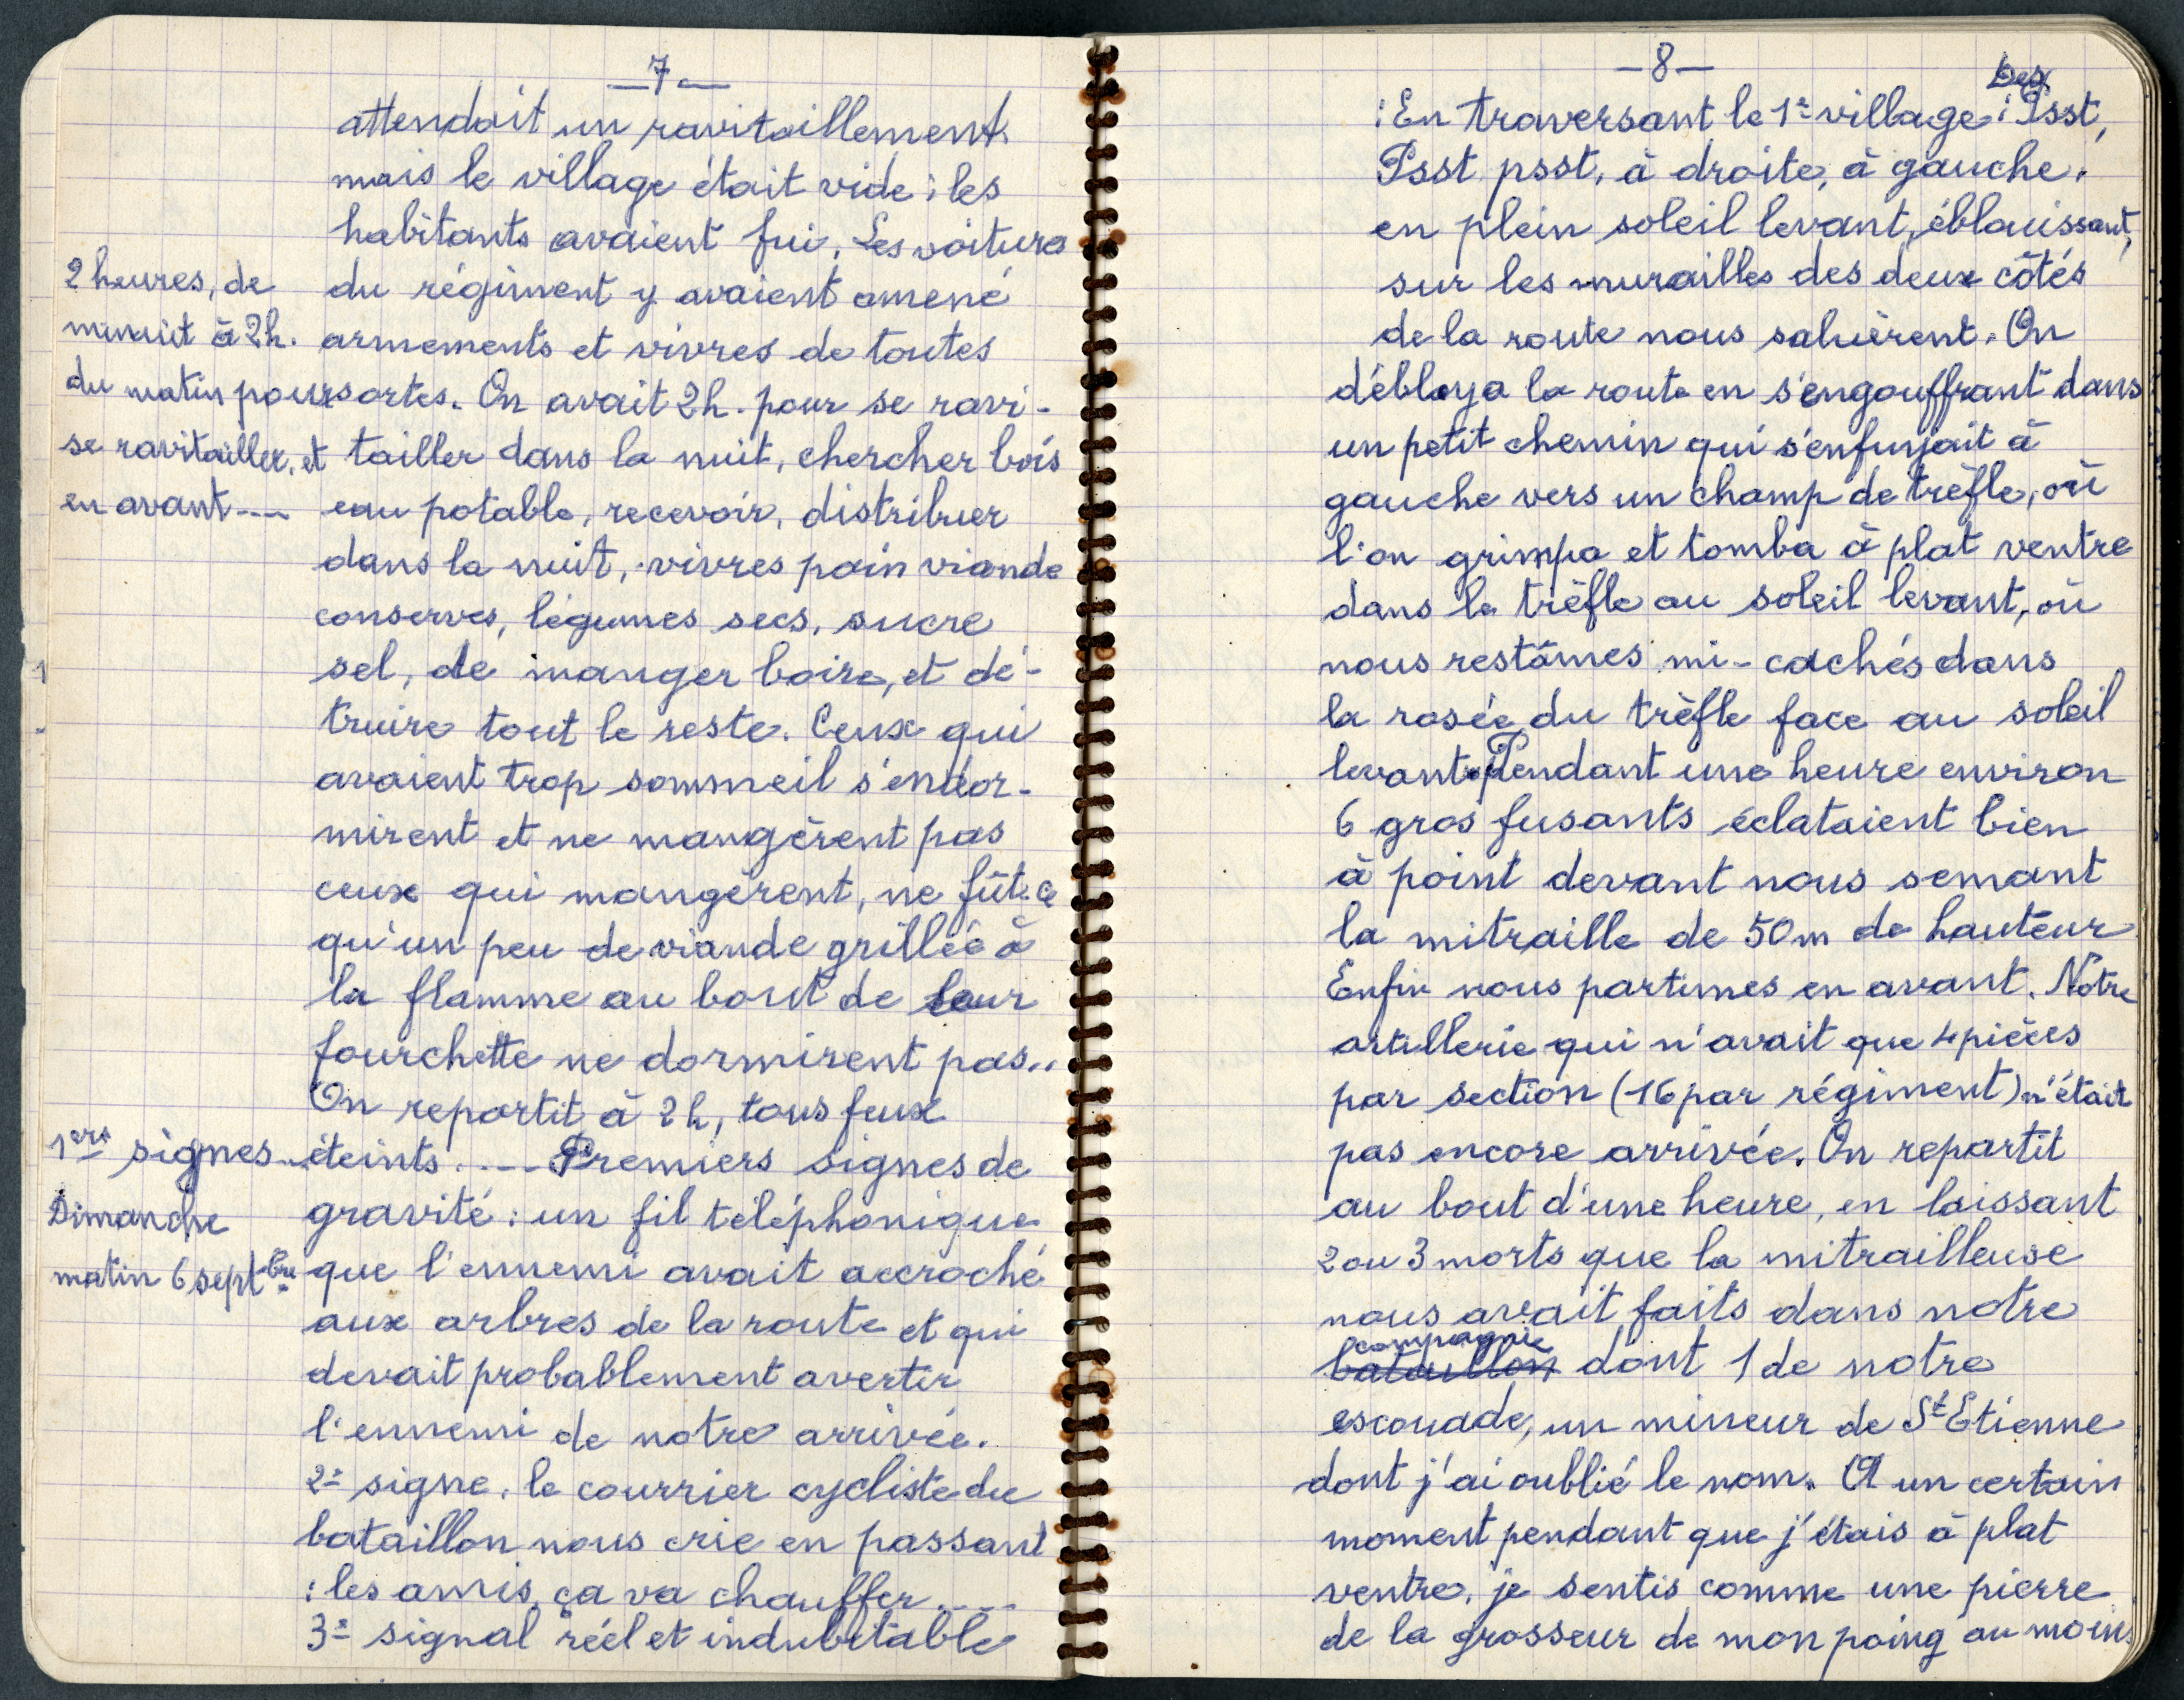 — 7 —
attendait un ravitaillement
mais le village était vide ; les
habitants avaient fui. Les voitures
du régiment y avaient amené
armements et vivres de toutes
sortes. On avait 2h. pour se ravi-
tailler dans la nuit, chercher bois
eau potable, recevoir, distribuer
dans la nuit, vivres pain viande
conserves, légumes secs, sucre
sel, de manger boire, et dé-
truire tout le reste. Ceux qui
avaient trop sommeil s'endor-
mirent et ne mangèrent pas
ceux qui mangèrent, ne fût-ce
qu'un peu de viande grillée à
la flamme au bout de leur
fourchette ne dormirent pas..
On repartit à 2h, tous feux
éteints .... Premiers signes de
gravité : un fil téléphonique
que l'ennemi avait accroché
aux arbres de la route et qui
devait probablement avertir
l'ennemi de notre arrivée.
2e signe. le courrier cycliste du
bataillon nous crie en passant
: les amis, ça va chauffer....
3e signal réel et indubitable
2 heures, de
minuit à 2h.
du matin pour
se ravitailler, et
en avant ---
1ers signes
Dimanche
matin 6 septbre
— 8 —
: En traversant le 1er village : Des Psst,
Psst psst, à droite, à gauche.
en plein soleil levant, éblouissant,
sur les murailles des deux côtés
de la route nous saluèrent. On
débloya la route en s'engouffrant dans
un petit chemin qui s'enfuyait à
gauche vers un champ de trèfle, où
l'on grimpa et tomba à plat ventre
dans le trèfle au soleil levant, où
nous restâmes mi-cachés dans
la rosée du trèfle face au soleil
levant. Pendant une heure environ
6 gros fusants éclataient bien
à point devant nous semant
la mitraille de 50m de hauteur
Enfin nous partimes en avant. Notre
artillerie qui n'avait que 4 pièces
par section (16 par régiment) n'était
pas encore arrivée. On repartit
au bout d'une heure, en laissant
2 ou 3 morts que la mitrailleuse
nous avait faits dans notre
compagnie
bataillon dont 1 de notre
escouade, un mineur de St Etienne
dont j'ai oublié le nom. A un certain
moment pendant que j'étais à plat
ventre, je sentis comme une pierre
de la grosseur de mon poing au moins